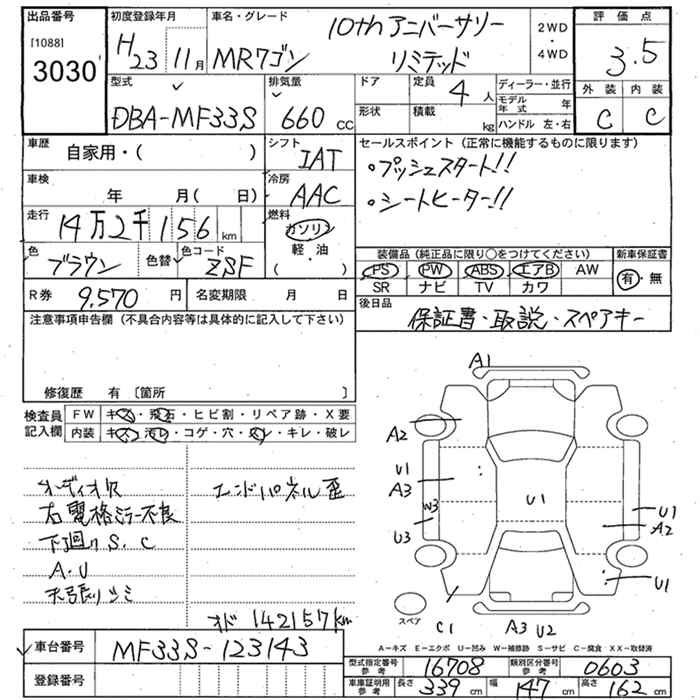 出品番号
[1088]
3030
初度登録年月
H23 11月
車名・グレード
MRワゴン 10thアニバーサリー
リミテッド
2WD
・
4WD
評価点
3.5
外装 内装
C C
型式
DBA-MF33S
排気量
660 cc
ドア
定員 4 人
形状
積載 kg
ディーラー・並行
モデル年式 年
ハンドル 左・右
車歴 自家用・( )
シフト IAT
車検 年 月( 日)
冷房 AAC
走行 14万2千156km
燃料 ガソリン
軽・油
( )
色 ブラウン 色替 色コード ZSF
R券 9,570 円 名変期限 月 日
セールスポイント(正常に機能するものに限ります)
。プッシュスタート!!
。シートヒーター!!
装備品(純正品に限り〇をつけてください) 新車保証書
PS PW ABS エアB AW 有・無
SR ナビ TV カワ
後日品 保証書・取説・スペアキー
注意事項申告欄(不具合内容等は具体的に記入して下さい)
修復歴 有〔箇所 〕
検査員 記入欄
FW キズ・飛石・ヒビ割・リペア跡・X要
内装 キズ・汚レ・コゲ・穴・スレ・キレ・破レ
オーディオ欠 エンドパネル歪
右電格ミラー不良
下廻りS.C
A.U
天張りシミ
オド 142157km
車台番号 MF33S-123143
登録番号
A1
A2
U1
A3
W3
U3
U1
U1
A2
U1
C1
A3 U2
スペア
A-キズ E-エクボ U-凹み W-補修跡 S-サビ C-腐食 XX-取替済
型式指定番号 参考 16708 類別区分番号 参考 0603
車庫証明用 参考 長さ 339cm 幅 147cm 高さ 162cm